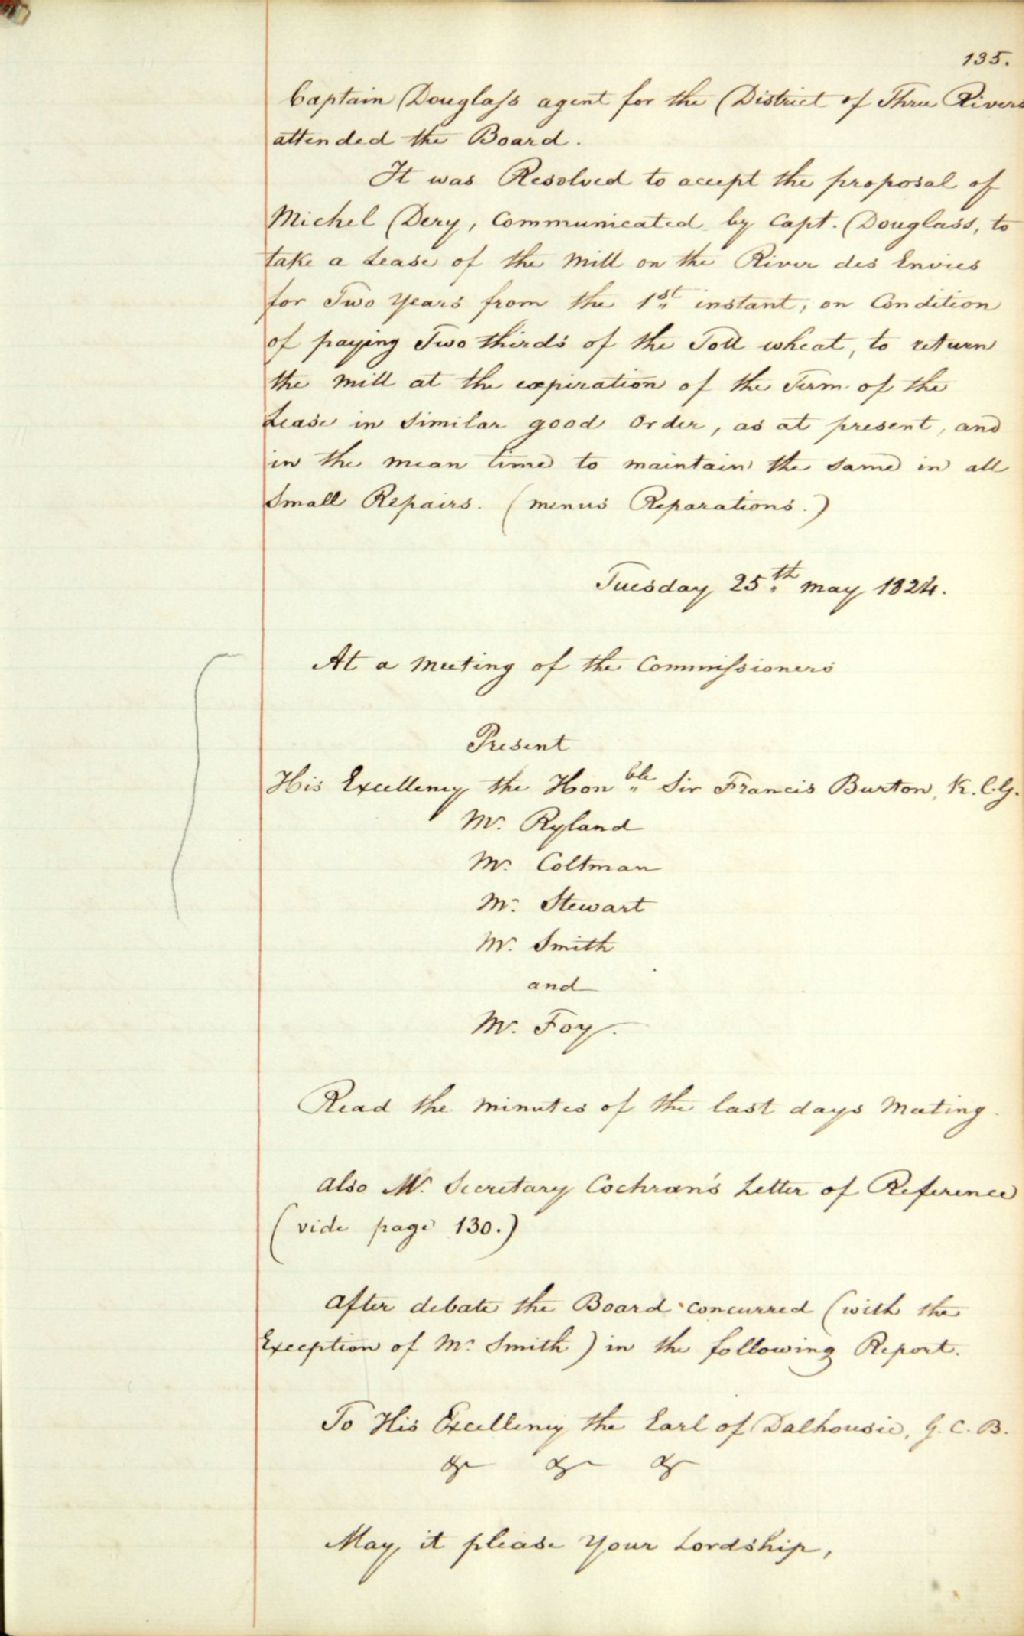 135.
Captain Douglass agent for the District of Three Rivers
attended the Board.
It was Resolved to accept the proposal of
Michel Dery, Communicated by Capt. Douglass, to
take a Lease of the Mill on the River des Envies
for Two Years from the 1st instant, on Condition
of paying Two thirds of the Toll wheat, to return
the Mill at the expiration of the Term of the
Lease in Similar good Order, as at present, and
in the mean time to maintain the same in all
Small Repairs. (menus Reparations.)
Tuesday 25th May 1824.
At a Meeting of the Commissioners
Present
His Excellency the Honble Sir Francis Burton, K.C.G.
Mr. Ryland
Mr. Coltman
Mr. Stewart
Mr. Smith
and
Mr. Foy.
Read the Minutes of the last days Meeting.
also Mr. Secretary Cochran's Letter of Reference
(vide page 130.)
After debate the Board concurred (with the
Exception of Mr. Smith) in the following Report.
To His Excellency the Earl of Dalhousie, G.C.B.
&c &c &c
May it please Your Lordship,